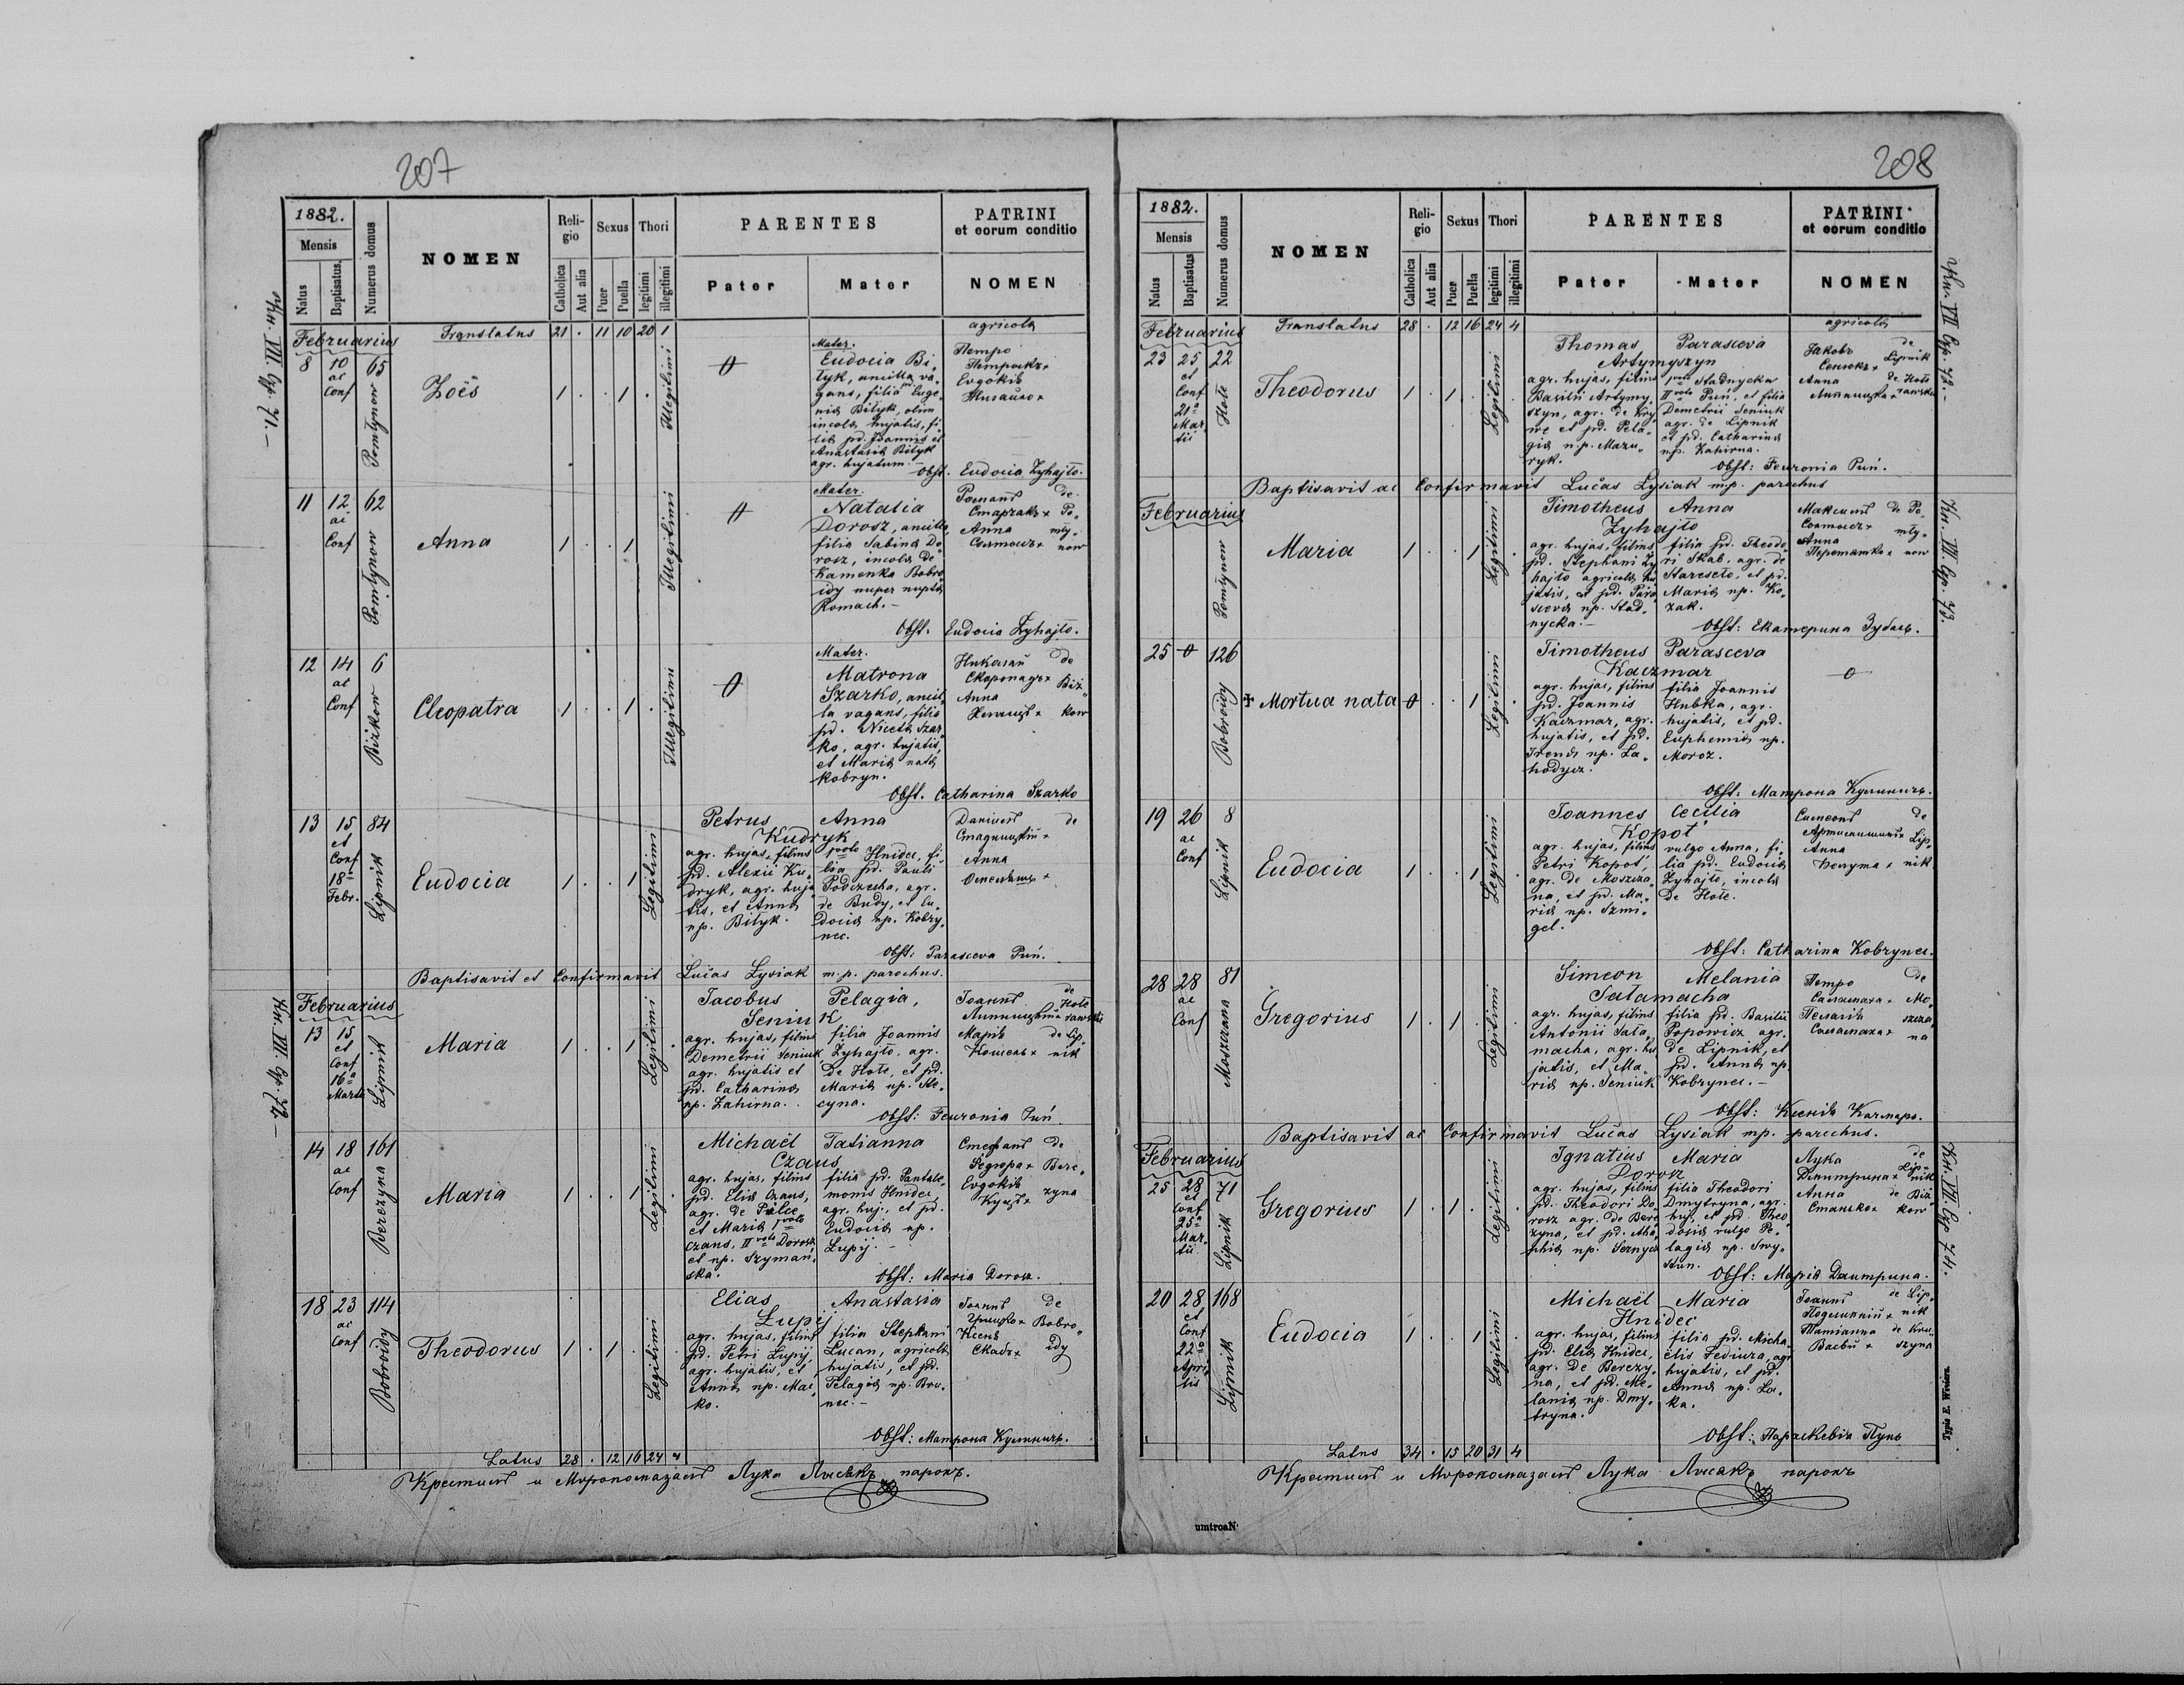 207
1882.
Mensis
Natus
Baptisatus
Numerus domus
NOMEN
Religio
Catholica
Aut alia
Sexus
Puer
Puella
Thori
legitimi
illegitimi
PARENTES
Pater
Mater
PATRINI
et eorum conditio
NOMEN
Кн. VII. Ср. 71.
Februarius
Translatus 21 . 11 10 20 1
agricolæ
8 10 65
ac
Conf
Pomłynow
Zoës
1 . . 1 .
Illegitimi
0
Mater.
Eudocia Bi-
łyk, ancilla va-
gans, filia Euge-
niæ Biłyk, olim
incolæ hujatis, fi-
liæ pd. Joannis et
Anastasiæ Biłyk
agr. hujatum.
Петро
Евдокія
Obst. Eudocia Zyhajło.
11 12 62
ac
Conf
Pomłynow
Anna
1 . . 1
Illegitimi
0
Mater.
Natalia
Dorosz, ancilla,
filia Sabinæ Do-
rosz, incolæ de
Kamenka Bobro-
idy nuper nuptæ
Romach.
Романъ de
Старчакъ + Po-
Anna mły-
Салтысъ + now
Obst. Eudocia Zyhajło.
12 14 6
ac
Conf
Biżkow
Cleopatra
1 . . 1 .
Illegitimi
0
Mater.
Matrona
Szarko, ancil-
la vagans, filia
pd. Nicetæ Szar-
ko, agr. hujatis,
et Mariæ natæ
Kobryn.
Николай de
Biż-
Anna
kow
Obst. Catharina Szarko
13 15 84
et
Conf
18ª
Febr.
Lipnik
Eudocia
1 . . 1
Legitimi
Petrus Anna
Kudryk
agr. hujas, filius
pd. Alexii Ku-
dryk, agr. huja-
tis, et Annæ
np. Biłyk.
1voto Hnidec, fi-
lia pd. Pauli
Podczecha, agr.
de Budy, et Eu-
dociæ np. Kobry-
nec.
Даниилъ de
Стадницкій +
Anna
Obst: Parasceva Puń.
Baptisavit et Confirmavit Lucas Łysiak m.p. parochus.
Кн. VII. Ср. 72.
Februarius
13 15
et
Conf
16ª
Martii
Lipnik
Maria
1 . . 1 .
Legitimi
Jacobus Pelagia,
Seniuk
agr. hujas, filius
Demetrii Seniuk
agr. hujatis et
pd. Catharinæ
np. Zahirna.
filia Joannis
Zyhajło, agr.
de Hole, et pd.
Mariæ np. Ste-
cyna.
Іоаннъ de Hole
Марія de Lip-
Кошель + nik
Obst: Feuronia Puń
14 18 161
ac
Conf
Berezyna
Maria
1 . . 1 .
Legitimi
Michaël Tatianna
Czaus
agr. hujas, filius
pd. Eliæ Czaus,
agr. de Piłce
et Mariæ 1voto
Czaus, IIvoto Dorosz
et np. Szymań-
ska.
filia pd. Pantale-
monis Hnidec,
agr. huj., et pd.
Eudociæ np.
Łupij.
Стефанъ de
Федюра + Bere-
Евдокія zyna
Куцъ +
Obst: Maria Dorosz.
18 23 114
ac
Conf
Bobroidy
Theodorus
1 . 1 .
Legitimi
Elias Anastasia
Łupij
agr. hujas, filius
pd. Petri Łupij,
agr. hujatis, et
Annæ np. Mac-
ko.
filia Stephani
Lucan, agricolæ
hujatis, et pd.
Pelagiæ np. Bru-
nec.
Іоаннъ de
Грицко + Bobro-
Ксеня idy
Скабъ +
Obst: Матрона Кулиничъ.
Latus 28 . 12 16 24 4
Крестилъ и Муропомазалъ Лука Лысякъ парохъ.
208
1882.
Mensis
Natus
Baptisatus
Numerus domus
NOMEN
Religio
Catholica
Aut alia
Sexus
Puer
Puella
Thori
legitimi
illegitimi
PARENTES
Pater
Mater
PATRINI
et eorum conditio
NOMEN
Februarius
Translatus 28 . 12 16 24 4
agricolæ
23 25 22
et
Conf
21ª
Mar-
tii
Hole
Theodorus
1 . 1 . .
Legitimi
Thomas Parasceva
Artymyszyn
agr. hujas, filius
Basilii Artymy-
szyn, agr. de Kry-
we et pd. Pela-
giæ np. Mazu-
ryk.
1voto Stadnycka
IIvoto Puń, et filia
Demetrii Seniuk
agr. de Lipnik
et pd. Catharinæ
np. Zahirna.
Яковъ de
Сенюкъ + Lipnik
Anna de Hole
Липницка + rawskie
Obst: Feuronia Puń.
Baptisavit ac Confirmavit Lucas Łysiak mp. parochus
Кн. VII. Ср. 73.
Februarius
Pomłynow
Maria
1 . . 1 .
Legitimi
Timotheus Anna
Zyhajło
agr. hujas, filius
pd. Stephani Zy-
hajło agricolæ hu-
jatis, et pd. Para-
scevæ np. Stad-
nycka.
filia pd. Theodo-
ri Skab, agr. de
Staresoło, et pd.
Mariæ np. Ko-
zak.
Максимъ de Po-
Солтысъ + mły-
Anna now
Перетятко +
Obst: Екатерина Зубаль.
25 0 126
Bobroidy
+ Mortua nata
0 . . 1 .
Legitimi
Timotheus Parasceva
Kaczmar
agr. hujas, filius
pd. Joannis
Kaczmar, agr.
hujatis, et pd.
Irenæ np. Ła-
hodycz.
filia Joannis
Hubka, agr.
hujatis, et pd.
Euphemiæ np.
Moroz.
0
Obst: Матрона Кулиничъ.
19 26 8
ac
Conf
Lipnik
Eudocia
1 . . 1 .
Legitimi
Joannes Cecilia
Kopoť
agr. hujas, filius
Petri Kopoť,
agr. de Moszcza-
na, et pd. Ma-
riæ np. Szmi-
gel.
vulgo Anna, fi-
lia pd. Eudociæ
Zyhajło, incolæ
de Hole.
Симеонъ de
Lip-
Anna
nik
Obst: Catharina Kobrynec.
28 28 81
ac
Conf
Moszczana
Gregorius
1 . 1 .
Legitimi
Simeon Melania
Sałamacha
agr. hujas, filius
Antonii Sała-
macha, agr. hu-
jatis, et Ma-
riæ np. Seniuk
filia pd. Basilii
Popowicz agr.
de Lipnik, et
pd. Annæ np.
Kobrynec.
Петро de
Саламаха + Mo-
Пелагія szcza-
Саламаха + na
Obst: Ксенія Качмаръ.
Baptisavit ac Confirmavit Lucas Łysiak mp. parochus.
Кн. VII. Ср. 74.
Februarius
25 28 71
et
Conf
25ª
Mar-
tii
Lipnik
Gregorius
1 . 1 . .
Legitimi
Ignatius Maria
Dorosz
agr. hujas, filius
pd. Theodori Do-
rosz agr. de Bere-
zyna, et pd. Aha-
phiæ np. Sernyca
filia Theodori
Dmytryna, agr.
huj. et pd. Theo-
dosiæ vulgo Pe-
lagiæ np. Swy-
stun.
Лука de
Димитрина + Lipnik
Анна de Biż-
Станько + kow
Obst: Марія Дмитрина.
20 28 168
et
Conf
22ª
Apri-
lis
Lipnik
Eudocia
1 . . 1 .
Legitimi
Michaël Maria
Hnidec
agr. hujas, filius
pd. Eliæ Hnidec,
agr. de Berezy-
na, et pd. Me-
laniæ np. Dmy-
tryna.
filia pd. Micha-
ëlis Fediura, agr.
hujatis, et pd.
Annæ np. Ła-
ka.
Іоаннъ de Lip-
nik
Татіанна de Kru-
szyna
Obst: Параскевія Пунь
Typis E. Winiarz.
Latus 34 . 15 20 31 4
Крестилъ и Муропомазалъ Лука Лысякъ парохъ
Naortmu